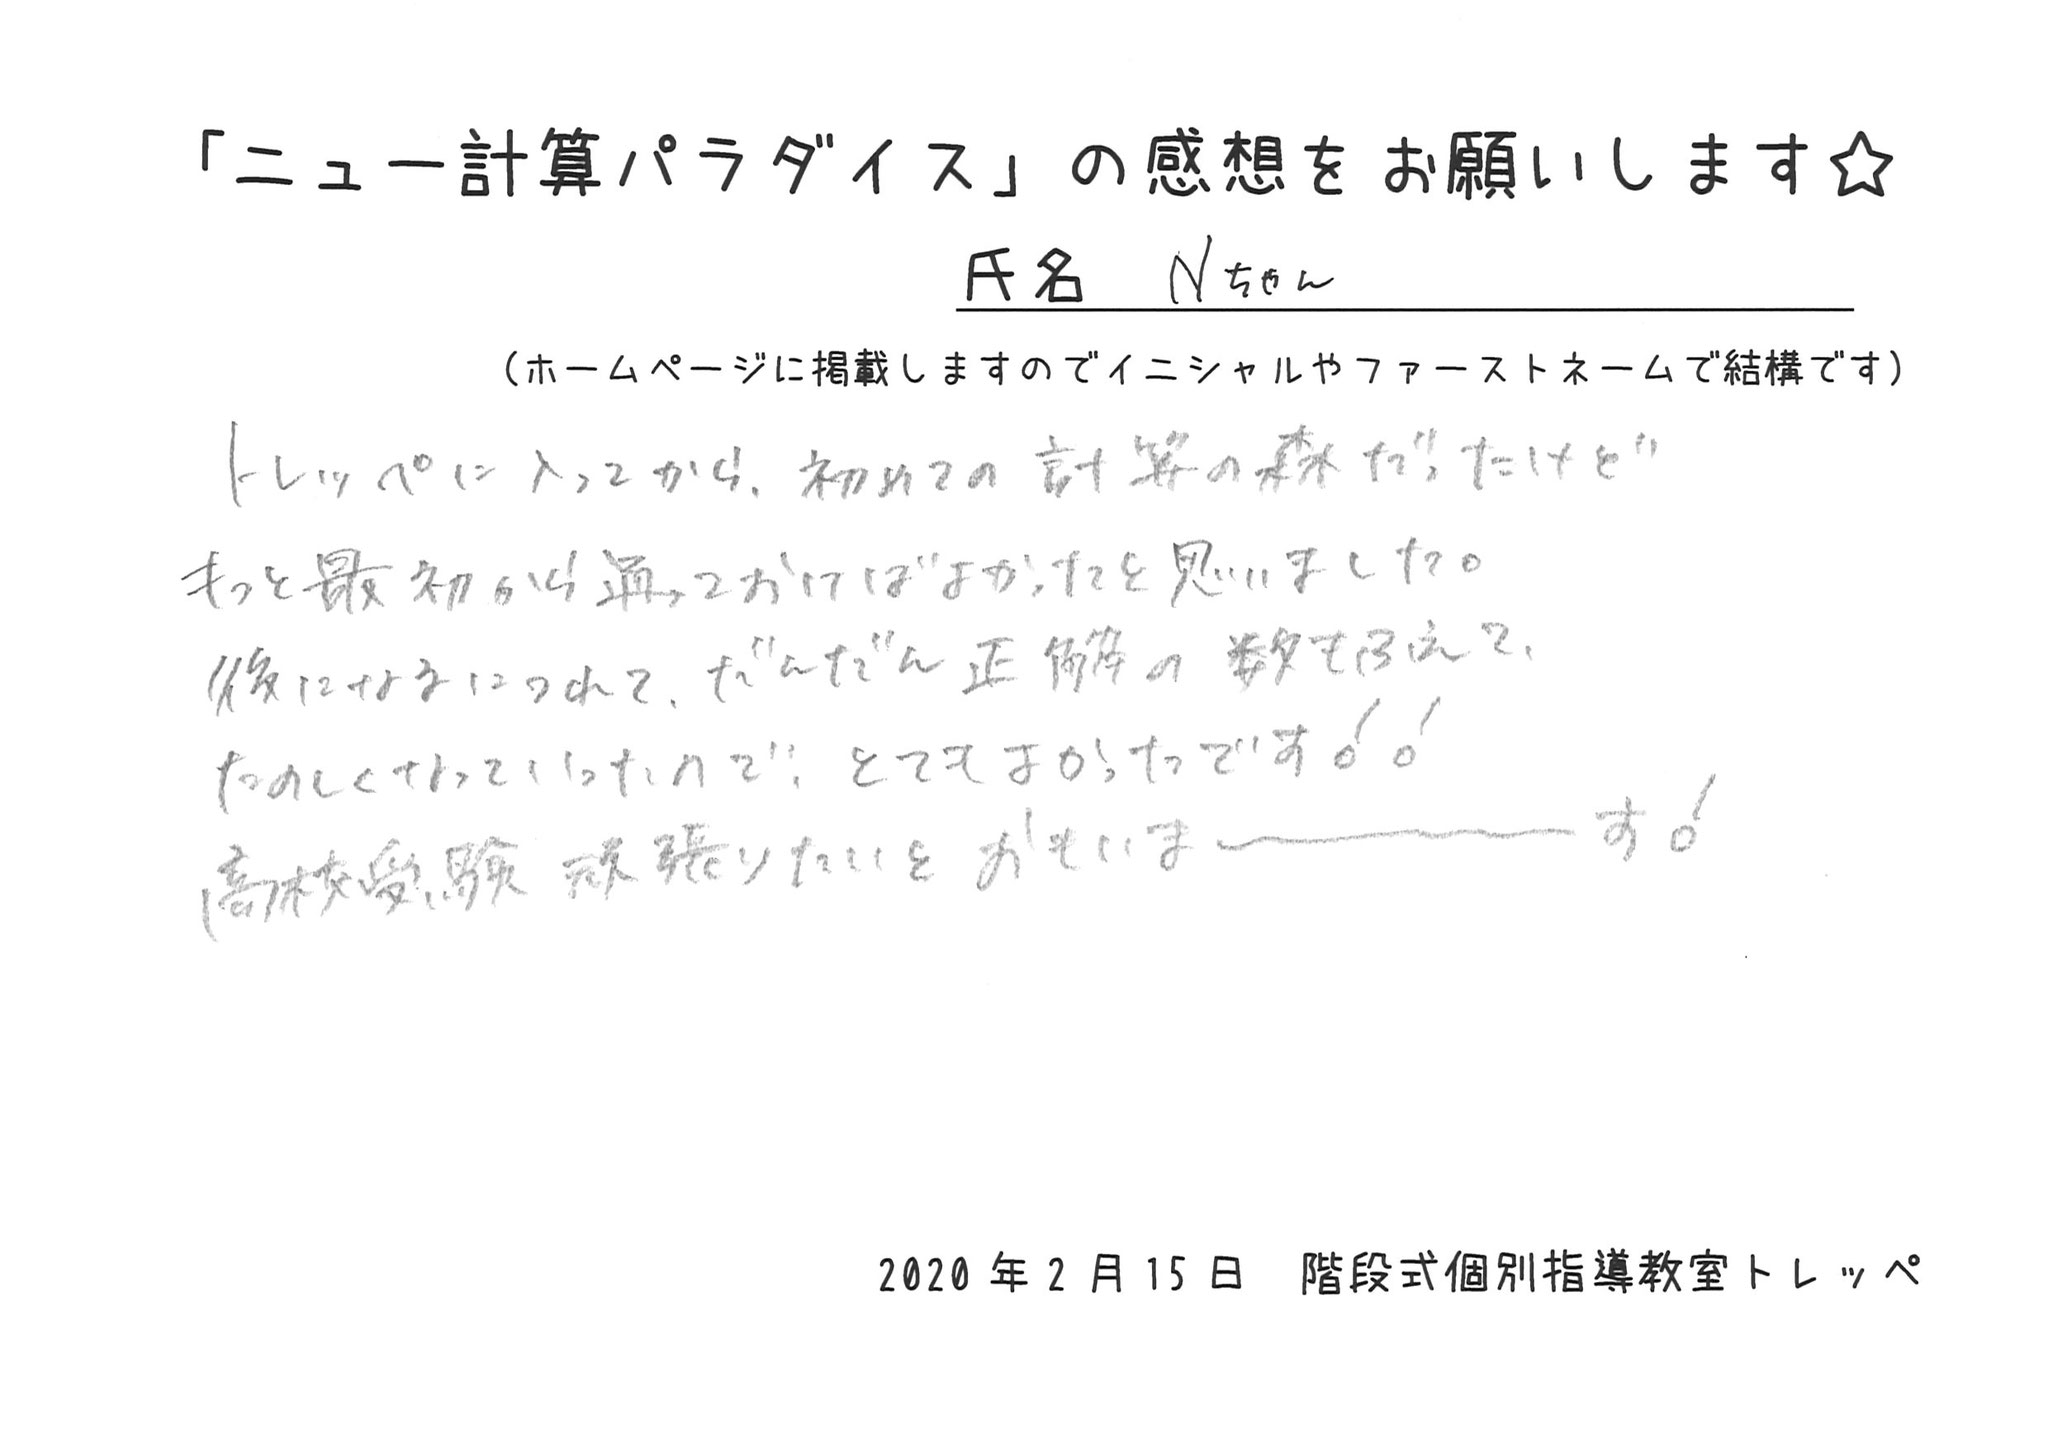 「ニュー計算パラダイス」の感想をお願いします☆
氏名 Nちゃん
(ホームページに掲載しますのでイニシャルやファーストネームで結構です)
トレッペに入ってから、初めての計算の森だったけど
もっと最初から通っておけばよかったと思いました。
後になるにつれて、だんだん正解の数もふえて、
たのしくなっていったので、とてもよかったです!!
高校受験頑張りたいとおもいま〜す!
2020年2月15日 階段式個別指導教室トレッペ